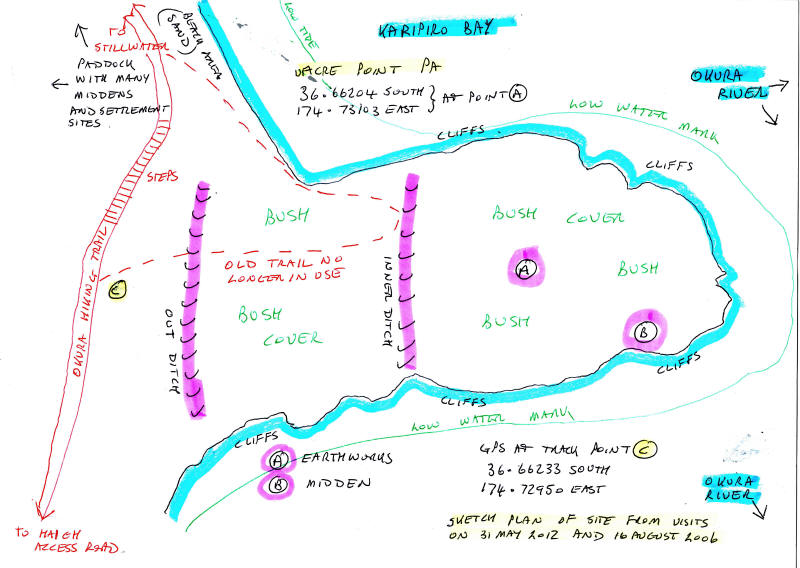 TO
STILLWATER
PADDOCK
WITH MANY
MIDDENS
AND SETTLEMENT
SITES.
BEACH AREA
(SAND)
LOW TIDE
KARIPIRO BAY
VACRE POINT PA
36.66204 SOUTH
174.73103 EAST
AT POINT A
OKURA
RIVER
LOW WATER MARK
CLIFFS
CLIFFS
STEPS
BUSH
BUSH COVER
OLD TRAIL NO
LONGER IN USE
OKURA HIKING TRAIL
C
OUT DITCH
INNER DITCH
A
BUSH
BUSH
COVER
BUSH
B
CLIFFS
CLIFFS
LOW WATER MARK
CLIFFS
A EARTHWORKS
B MIDDEN
GPS AT TRACK POINT C
36.66233 SOUTH
174.72950 EAST
OKURA
RIVER
SKETCH PLAN OF SITE FROM VISITS
ON 31 MAY 2012 AND 16 AUGUST 2006
TO HAIGH
ACCESS ROAD.